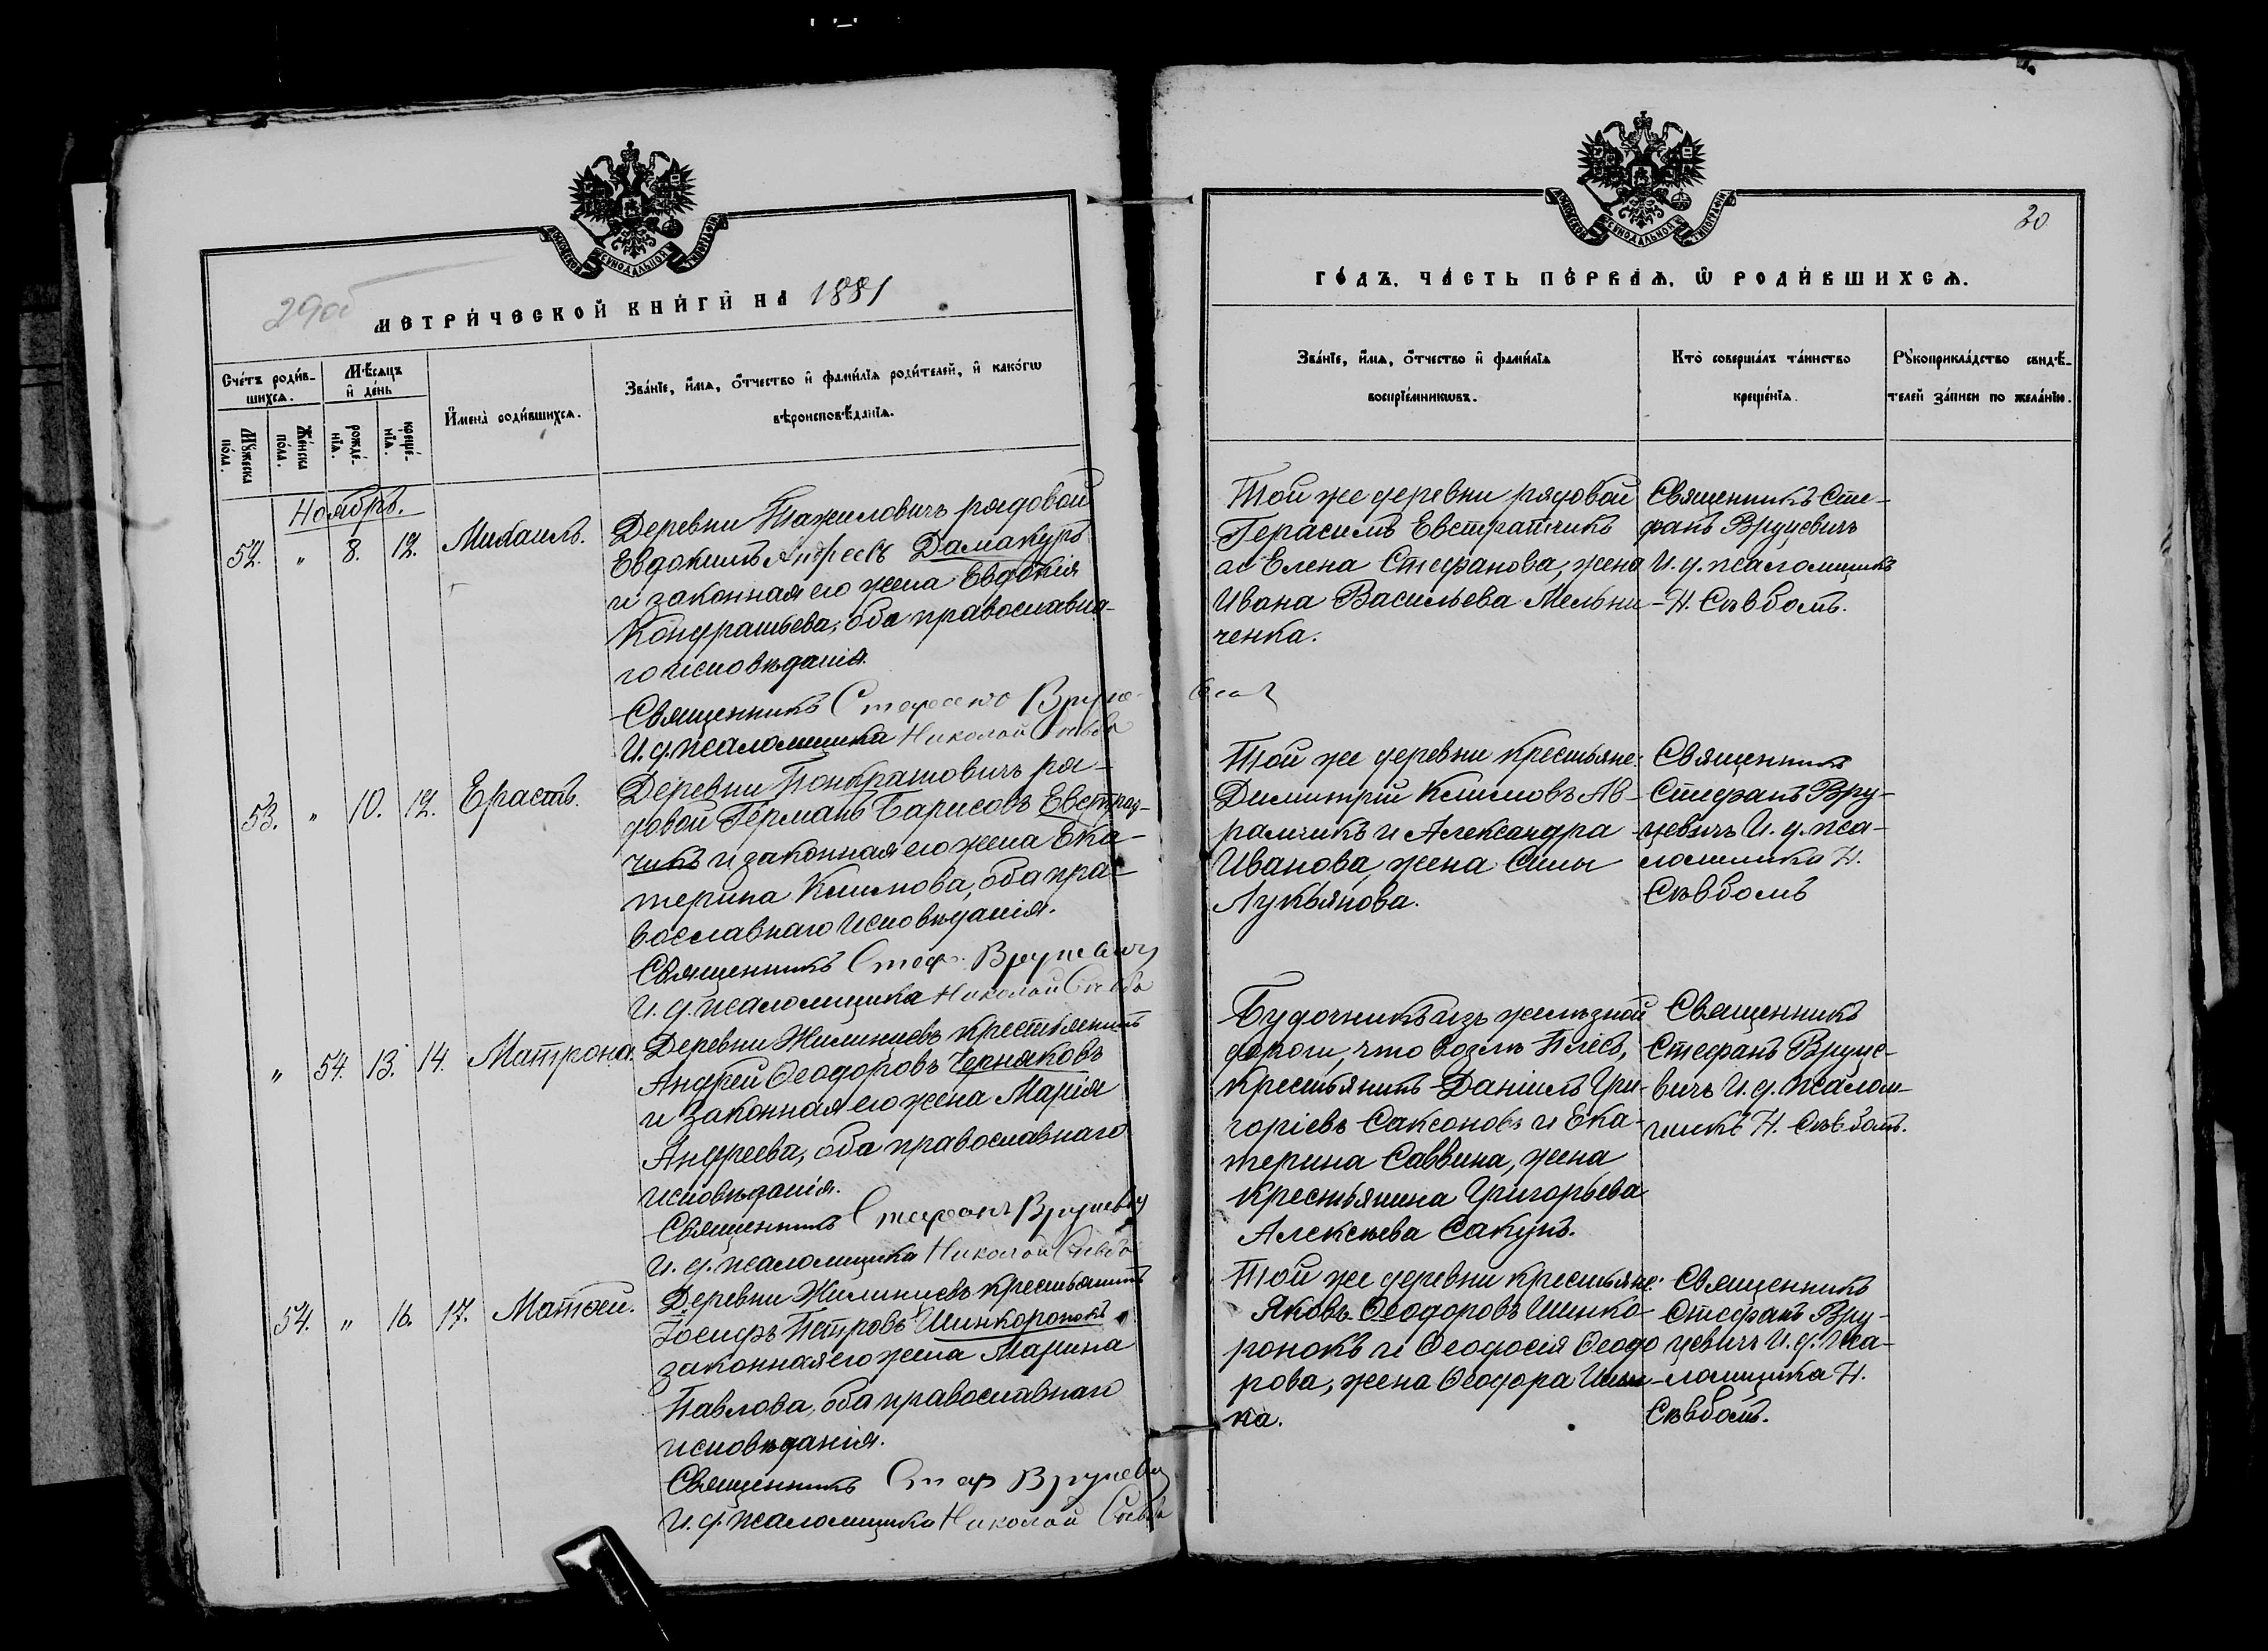 МОСКОВСКОЙ СѴНОДАЛЬНОЙ ТИПОГРАФІИ
29об
МЕТРИ́ЧЕСКОЙ КНИ́ГИ НА 1881
Сче́тъ роди́в-
шихсѧ.
Мѣ́сѧцъ
и҆ де́нь
И҆мена̀ роди́вшихсѧ.
Зва́нїе, и҆́мѧ, ѻ҆́тчество и҆ фами́лїѧ роди́телей, и҆ како́гѡ
вѣроисповѣ́данїѧ.
Мꙋ́жеска
по́ла.
Же́нска
по́ла.
рожде́-
нїѧ.
креще́-
нїѧ.
Ноябрь.
52. " 8. 12. Михаилъ.
Деревни Тажиловичъ рядовой
Евдокимъ Андреевъ Дамакуръ
и законная его жена Евдокія
Кондратьева, оба православна-
го исповѣданія.
Священникъ Стефанъ Вруце-
вичъ
И. д. псаломщика Николай
53. " 10. 12. Ерастъ.
Деревни Понкратовичъ ря-
довой Германъ Барисовъ Евстрат-
чикъ и законная его жена Ека-
терина Климова, оба пра-
вославнаго исповѣданія.
Священникъ Стеф. Вруцевичъ
И. д. псаломщика Николай
" 54. 13. 14. Матрона.
Деревни Жилиничъ крестьянинъ
Андрей Ѳеодоровъ Чернаковъ
и законная его жена Марія
Андреева, оба православнаго
исповѣданія.
Священникъ Стефанъ Вруцевичъ
И. д. псаломщика Николай
54. " 16. 17. Матѳей.
Деревни Жилиничъ крестьянинъ
Іосифъ Петровъ Шинкоронокъ и
законная его жена Марина
Павлова, оба православнаго
исповѣданія.
Священникъ Стеф Вруцевичъ
И. д. псаломщика Николай
МОСКОВСКОЙ СѴНОДАЛЬНОЙ ТИПОГРАФІИ
30
ГО́ДЪ. ЧА́СТЬ ПЕ́РВАѦ, Ѽ РОДИ́ВШИХСѦ.
Зва́нїе, и҆́мѧ, ѻ҆́тчество и҆ фами́лїѧ
воспрїе́мникѡвъ.
Кто̀ соверша́лъ та́инство
креще́нїѧ.
Рꙋкоприкла́дство свидѣ́-
телей за́писи по жела́нїю.
Той же деревни рядовой
Герасимъ Евстратчикъ
и Елена Стефанова, жена
Ивана Васильева Мельни-
ченка.
Священникъ Сте-
фанъ Вруцевичъ
И. д. псаломщика
Н.
Той же деревни крестьяне:
Димитрій Климовъ Ав-
рамчикъ и Александра
Иванова, жена Силы
Лукьянова.
Священникъ
Стефанъ Вру-
цевичъ И. д. пса-
ломщика Н.
Будочникъ изъ желѣзной
дороги, что возлѣ Плесъ,
крестьянинъ Даніилъ Гри-
горіевъ Саксоновъ и Ека-
терина Саввина, жена
крестьянина Григорьева
Алексѣева Сакунъ.
Священникъ
Стефанъ Вруце-
вичъ И. д. псалом-
щикъ Н.
Той же деревни крестьяне:
Яковъ Ѳеодоровъ Шинко-
ронокъ и Ѳеодосія Ѳеодо
рова, жена Ѳеодора
ка.
Священникъ
Стефанъ Вру-
цевичъ И. д. пса-
ломщика Н.